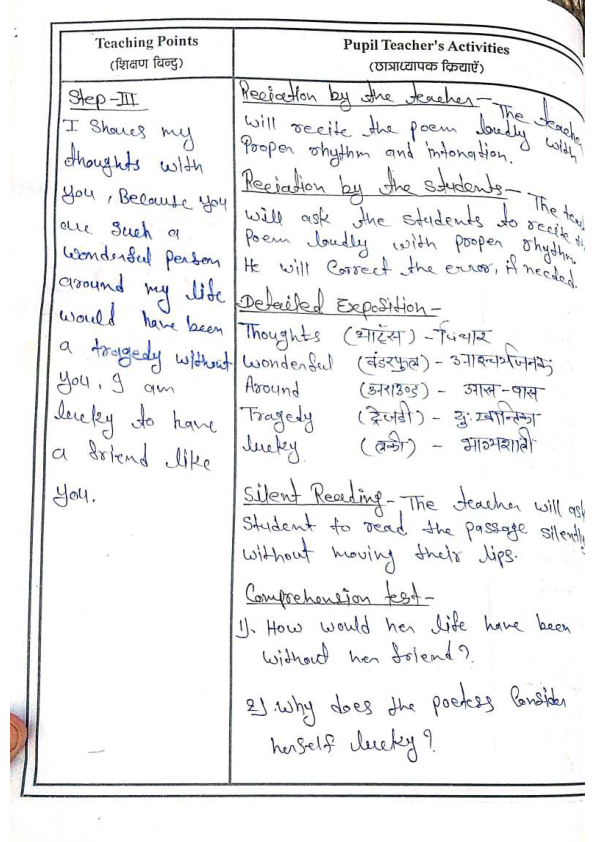 Teaching Points
(शिक्षण बिन्दु)
Step-III
I Shares my
thoughts with
you, Because you
are such a
wonderful person
around my life
would have been
a tragedy without
you, I am
lucky to have
a friend like
you.
Pupil Teacher's Activities
(छात्राध्यापक क्रियाऐं)
Reciation by the teacher- The teache
will recite the poem loudly with
Proper rhythm and intonation.
Reciation by the students- The tea
will ask the students to recite
Poem loudly with proper rhythm.
He will Correct the error, if needed.
Detailed Exposition-
Thoughts (थाट्स) - विचार
Wonderful (वंडरफुल) - आश्चर्यजनक
Around (अराउण्ड) - आस-पास
Tragedy (ट्रेजडी) - दुःखान्तिका
lucky (लकी) - भाग्यशाली
Silent Reading- The teacher will ask
Student to read the passage silently
without moving their lips.
Comprehension test-
1). How would her life have been
without her friend?
2) Why does the poetess Consider
herself lucky?